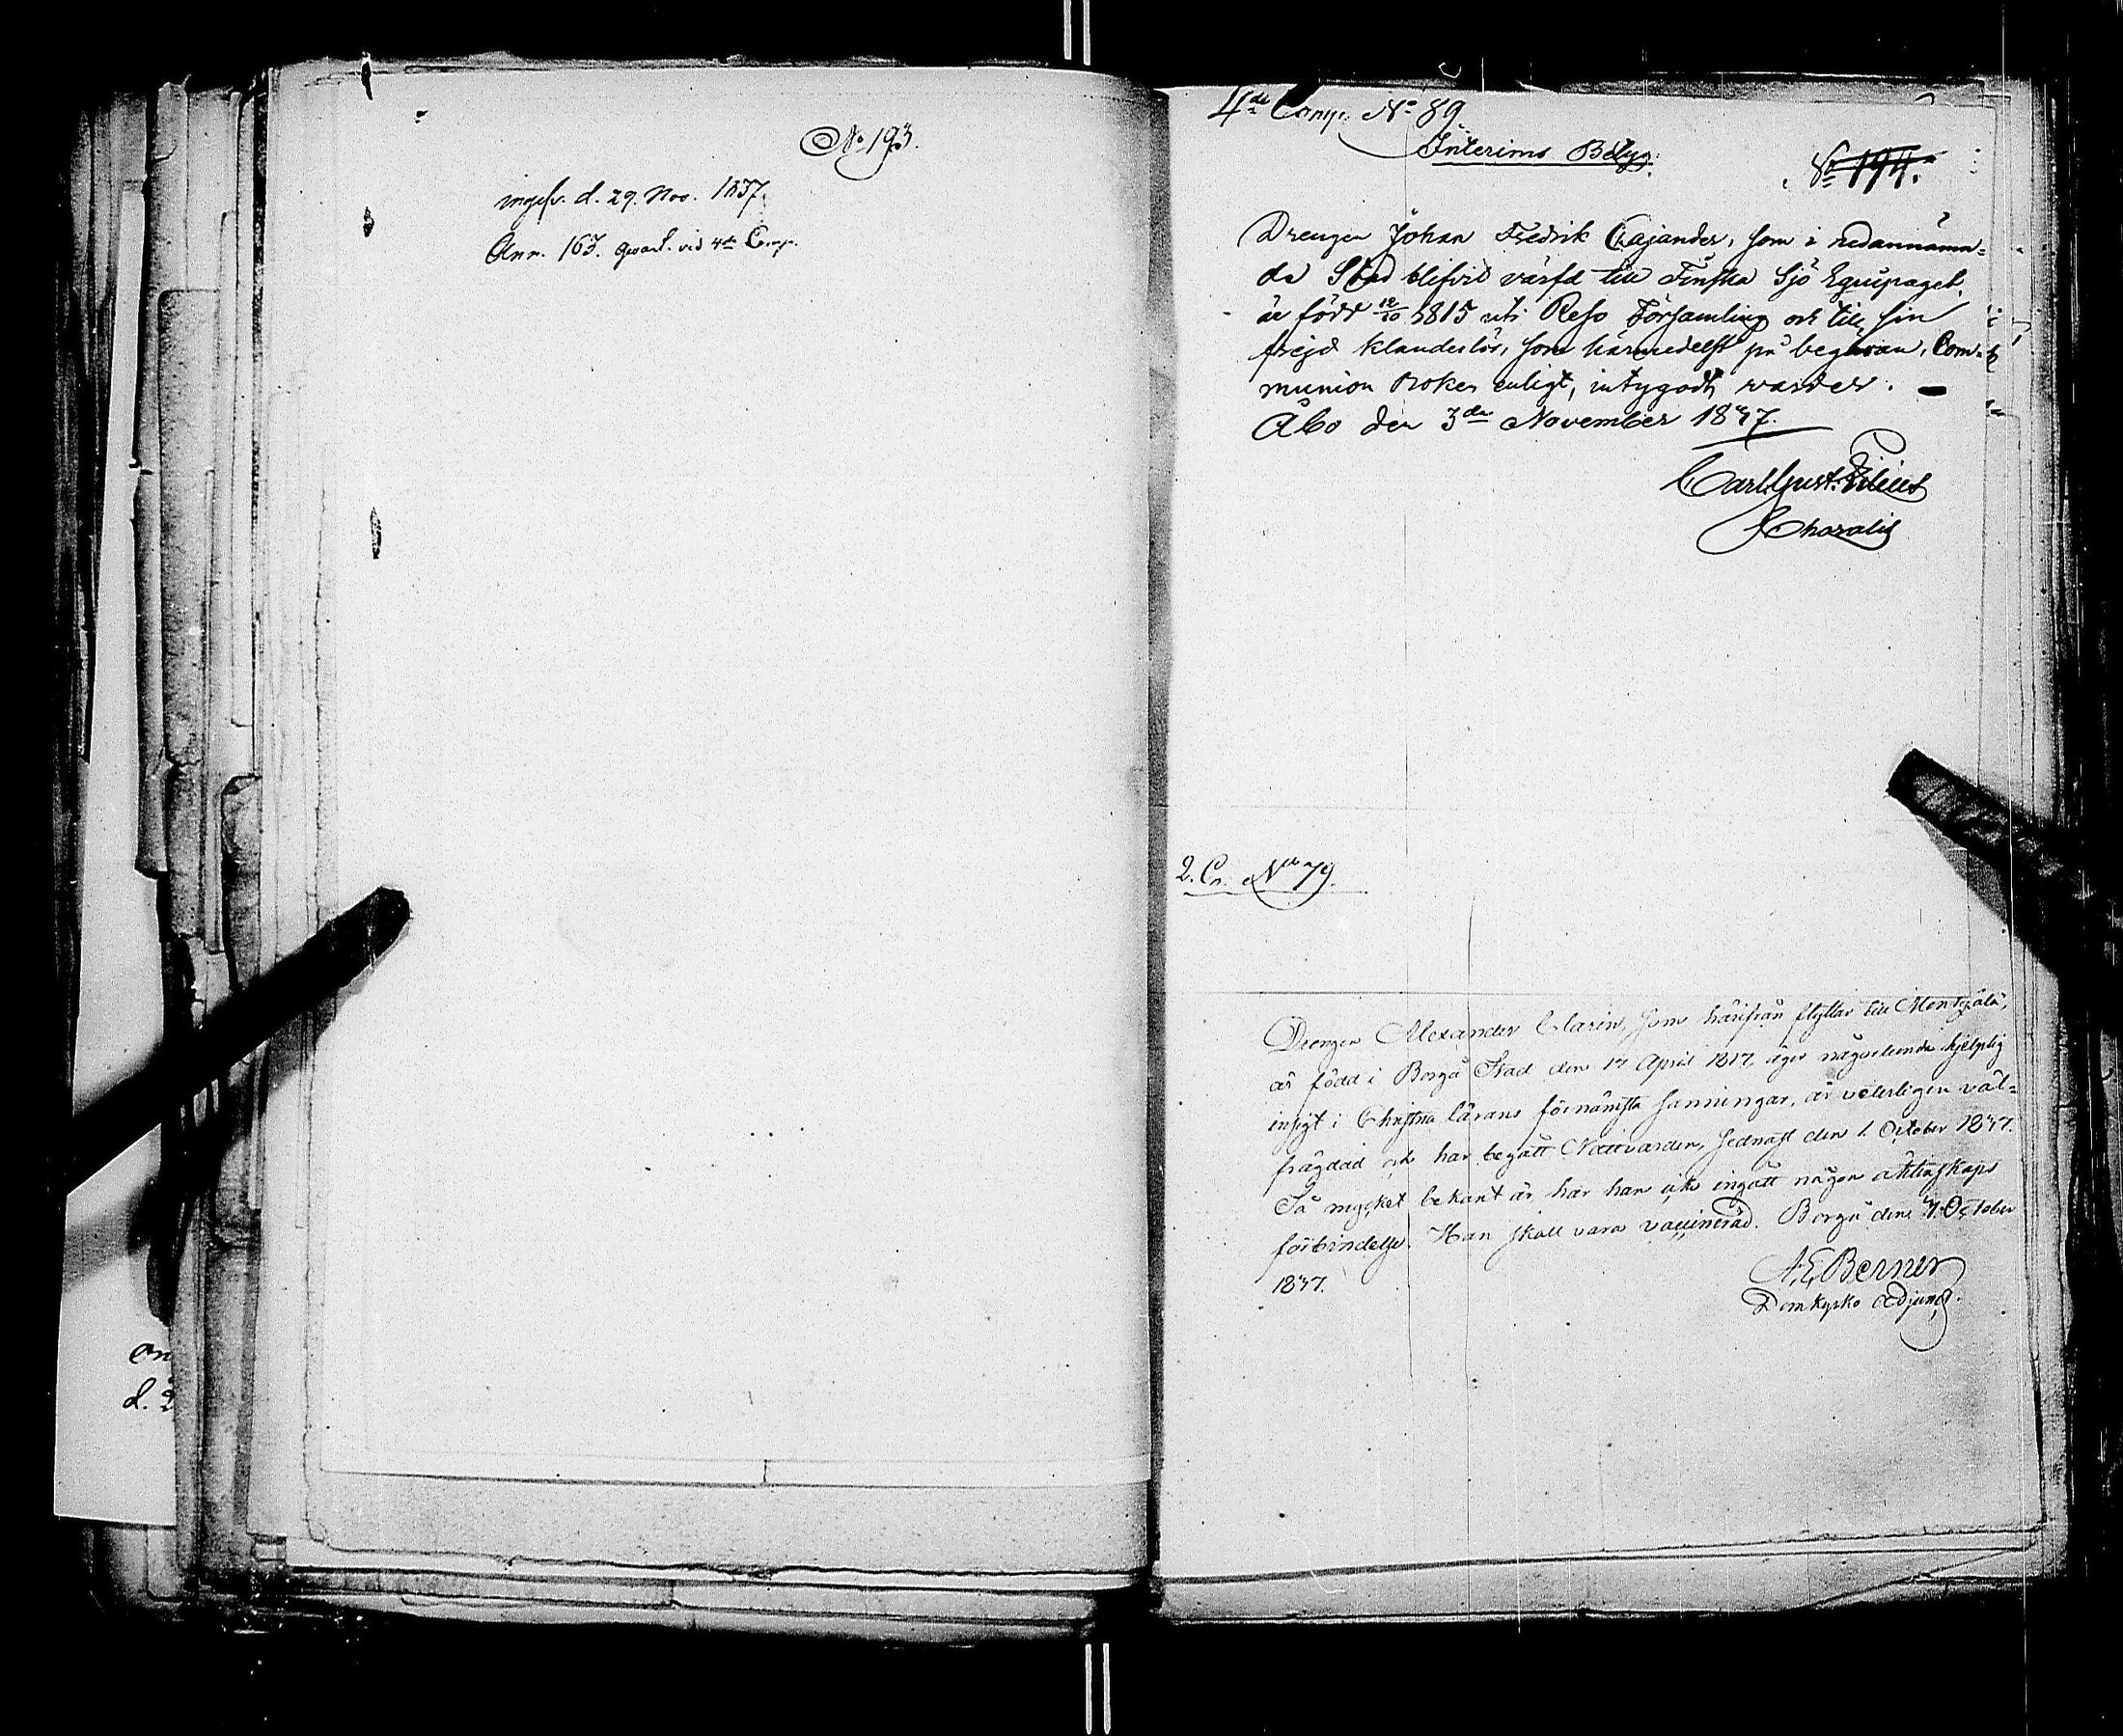 No 193.
ingifv. d. 29. Nov. 1837.
Ann. 163. qvart. vid 4de Comp.
On
d. 2
4de Comp. No 89
Interims Betyg.
No 194.
Drengen Johan Fredrik Cajander, som i nedannämn=
da Stad blifvit värfd till Finska Sjö Equipaget,
är född 12/10 1815 uti Reso Församling och till sin
frejd klanderlös, som härmedelst på begäran, Com=
munion Boken enligt, intygadt warder.
Åbo den 3de November 1837.
Carl Gust.
2. Co. No 79.
Drengen Alexander Clarin, som härifrån flyttar till Mentzälä,
är född i Borgå Stad den 17 April 1817, äger någorlunda hjelplig
insigt i Christna lärans förnämsta sanningar, är veterligen väl=
frägdad och har begått Nattvarden, sednast den 1. October 1837.
Så mycket bekant är, har han icke ingått någon äktenskaps
förbindelse. Han skall vara vaccinerad. Borgå den 7. October
1837.
A. E. Berner
Domkyrko Adjunct.